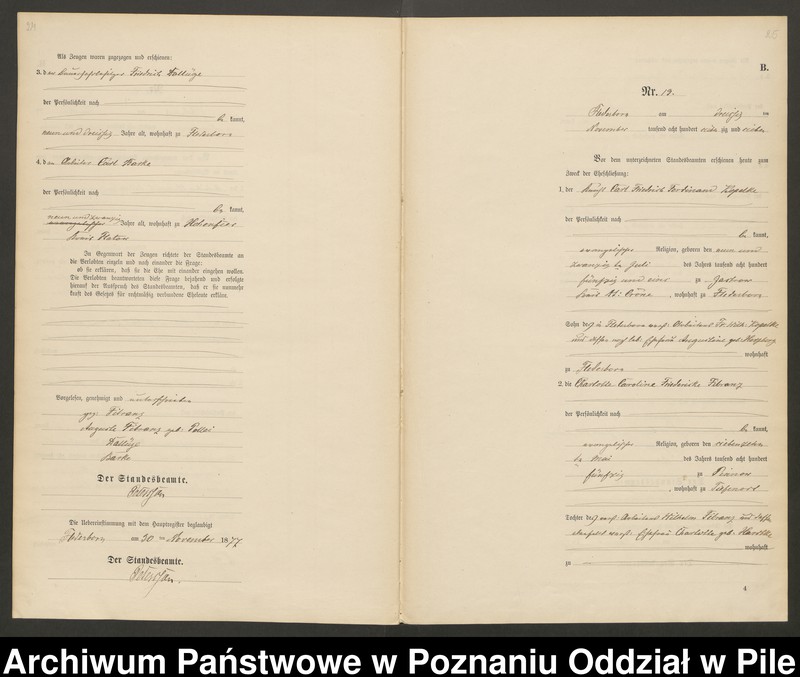 24
Als Zeugen waren zugezogen und erschienen:
3. der Friedrich Kallüge
der Persönlichkeit nach
be kannt,
neun und dreißig Jahre alt, wohnhaft zu Flederborn
4. der Arbeiter Carl Barke
der Persönlichkeit nach
be kannt,
neun und zwanzig
Jahre alt, wohnhaft zu Hohenfier
Kreis Flatow
In Gegenwart der Zeugen richtete der Standesbeamte an
die Verlobten einzeln und nach einander die Frage:
ob sie erklären, daß sie die Ehe mit einander eingehen wollen.
Die Verlobten beantworteten diese Frage bejahend und erfolgte
hierauf der Ausspruch des Standesbeamten, daß er sie nunmehr
kraft des Gesetzes für rechtmäßig verbundene Eheleute erkläre.
Vorgelesen, genehmigt und unterschrieben
gez. Tibranz
Auguste Tibranz geb.
Kallüge
Barke
Der Standesbeamte.
Die Uebereinstimmung mit dem Hauptregister beglaubigt
Flederborn am 30 ten November 1877
Der Standesbeamte.
25
B.
Nr. 19.
Flederborn am dreißig ten
November tausend acht hundert sieben zig und sieben
Vor dem unterzeichneten Standesbeamten erschienen heute zum
Zweck der Eheschließung:
1. der Knecht Carl Friedrich Ferdinand Kopelke
der Persönlichkeit nach
be kannt,
evangelischer Religion, geboren den neun und
zwanzig ten Juli des Jahres tausend acht hundert
fünfzig und eins zu Jastrow
Kreis Dt: Crone, wohnhaft zu Flederborn
Sohn des zu Flederborn verst. Arbeiters Kopelke
und dessen noch leb. Ehefrau Augustine geb.
wohnhaft
zu Flederborn
2. die Charlotte Caroline Friedericke Tibranz
der Persönlichkeit nach
be kannt,
evangelischer Religion, geboren den siebenzehn
ten Mai des Jahres tausend acht hundert
fünfzig zu
, wohnhaft zu Tiefenort
Tochter des verst. Arbeiters Wilhelm Tibranz und dessen
ebenfalls verst. Ehefrau Charlotte geb.
wohnhaft
zu
4
Archiwum Państwowe w Poznaniu Oddział w Pile